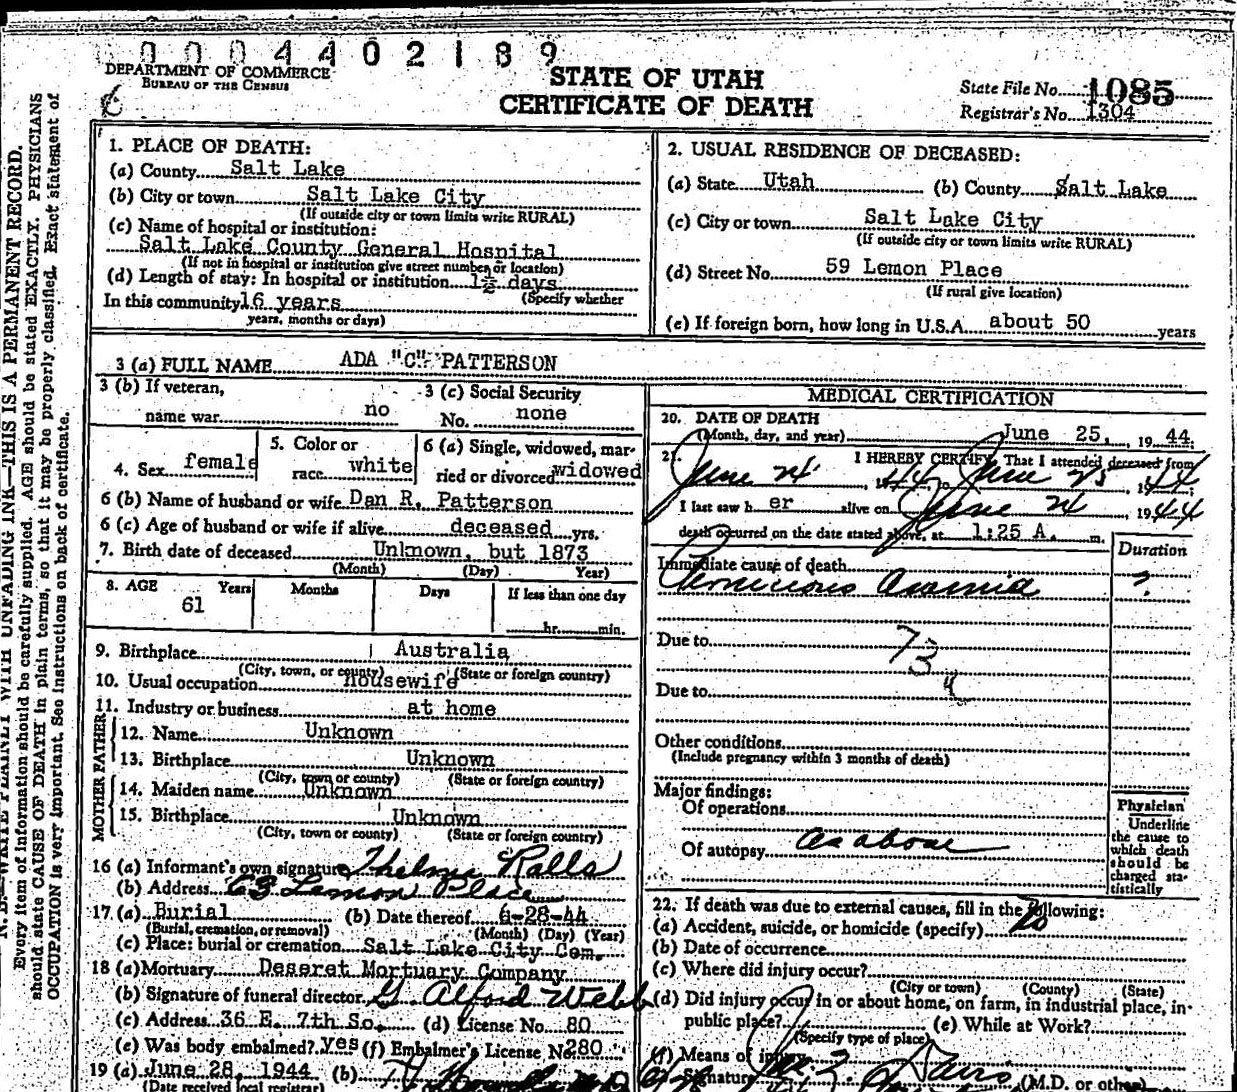 0004402189
DEPARTMENT OF COMMERCE
BUREAU OF THE CENSUS
STATE OF UTAH
CERTIFICATE OF DEATH
State File No. 1085
Registrar's No. 1304
N. B.—WRITE PLAINLY WITH UNFADING INK—THIS IS A PERMANENT RECORD.
Every item of information should be carefully supplied. AGE should be stated EXACTLY. PHYSICIANS
should state CAUSE OF DEATH in plain terms, so that it may be properly classified. Exact statement of
OCCUPATION is very important. See instructions on back of certificate.
1. PLACE OF DEATH:
(a) County Salt Lake
(b) City or town Salt Lake City
(If outside city or town limits write RURAL)
(c) Name of hospital or institution:
Salt Lake County General Hospital
(If not in hospital or institution give street number or location)
(d) Length of stay: In hospital or institution 1½ days
(Specify whether
In this community 16 years
years, months or days)
2. USUAL RESIDENCE OF DECEASED:
(a) State Utah (b) County Salt Lake
(c) City or town Salt Lake City
(If outside city or town limits write RURAL)
(d) Street No. 59 Lemon Place
(If rural give location)
(e) If foreign born, how long in U.S.A. about 50 years
3 (a) FULL NAME ADA "C" PATTERSON
3 (b) If veteran,
name war no
3 (c) Social Security
No. none
4. Sex female
5. Color or
race white
6 (a) Single, widowed, mar-
ried or divorced widowed
6 (b) Name of husband or wife Dan R. Patterson
6 (c) Age of husband or wife if alive deceased yrs.
7. Birth date of deceased Unknown, but 1873
(Month) (Day) Year)
8. AGE Years Months Days If less than one day
61
hr. min.
9. Birthplace Australia
(City, town, or county) (State or foreign country)
10. Usual occupation housewife
11. Industry or business at home
FATHER
12. Name Unknown
13. Birthplace Unknown
(City, town or county) (State or foreign country)
MOTHER
14. Maiden name Unknown
15. Birthplace Unknown
(City, town or county) (State or foreign country)
16 (a) Informant's own signature Thelma Ralls
(b) Address 63 Lemon Place
17. (a) Burial (b) Date thereof 6-28-44
(Burial, cremation, or removal) (Month) (Day) (Year)
(c) Place: burial or cremation Salt Lake City Cem.
18 (a) Mortuary Deseret Mortuary Company
(b) Signature of funeral director G Alford Webb
(c) Address 36 E. 7th So. (d) License No. 80
(e) Was body embalmed? yes (f) Embalmer's License No. 280
19 (a) June 28, 1944 (b)
(Date received local registrar)
MEDICAL CERTIFICATION
20. DATE OF DEATH
(Month, day, and year) June 25, 1944
21. I HEREBY CERTIFY, That I attended deceased from
June 24, 1944 to June 25 1944
I last saw her alive on June 24 1944
death occurred on the date stated above, at 1:25 A. m.
Duration
Immediate cause of death
Pernicious Anemia ?
Due to 73
Due to
Other conditions
(Include pregnancy within 3 months of death)
Major findings:
Of operations
Of autopsy as above
Physician
Underline
the cause to
which death
should be
charged sta-
tistically
22. If death was due to external causes, fill in the following:
(a) Accident, suicide, or homicide (specify) No
(b) Date of occurrence
(c) Where did injury occur?
(City or town) (County) (State)
(d) Did injury occur in or about home, on farm, in industrial place, in-
public place? (e) While at Work?
(Specify type of place)
(f) Means of injury
Signature (M.D. or other)